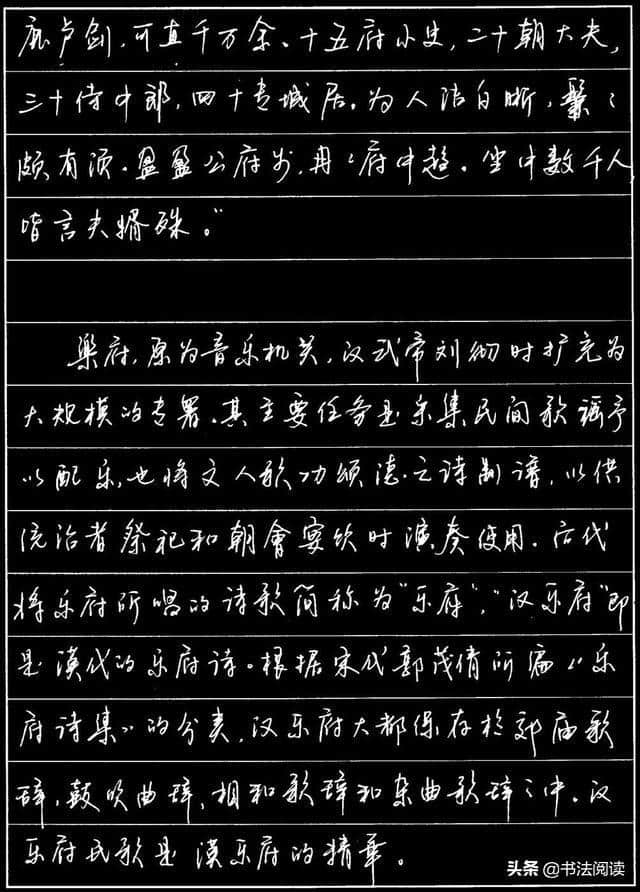 鹿卢剑,可直千万余。十五府小史,二十朝大夫,
三十侍中郎,四十专城居。为人洁白晰,鬑々
颇有须。盈盈公府步,冉々府中趋。坐中数千人,
皆言夫婿殊。”
乐府,原为音乐机关,汉武帝刘彻时扩充为
大规模的专署。其主要任务是采集民间歌谣予
以配乐,也将文人歌功颂德之诗制谱,以供
统治者祭祀和朝會宴饮时演奏使用。古代
将乐府所唱的诗歌简称为“乐府”,“汉乐府”即
是漢代的乐府诗。根据宋代郭茂倩所编《乐
府诗集》的分类,汉乐府大都保存於郊庙歌
辞,鼓吹曲辞,相和歌辞和杂曲歌辞之中。汉
乐府民歌是漢乐府的精華。
头条@书法阅读